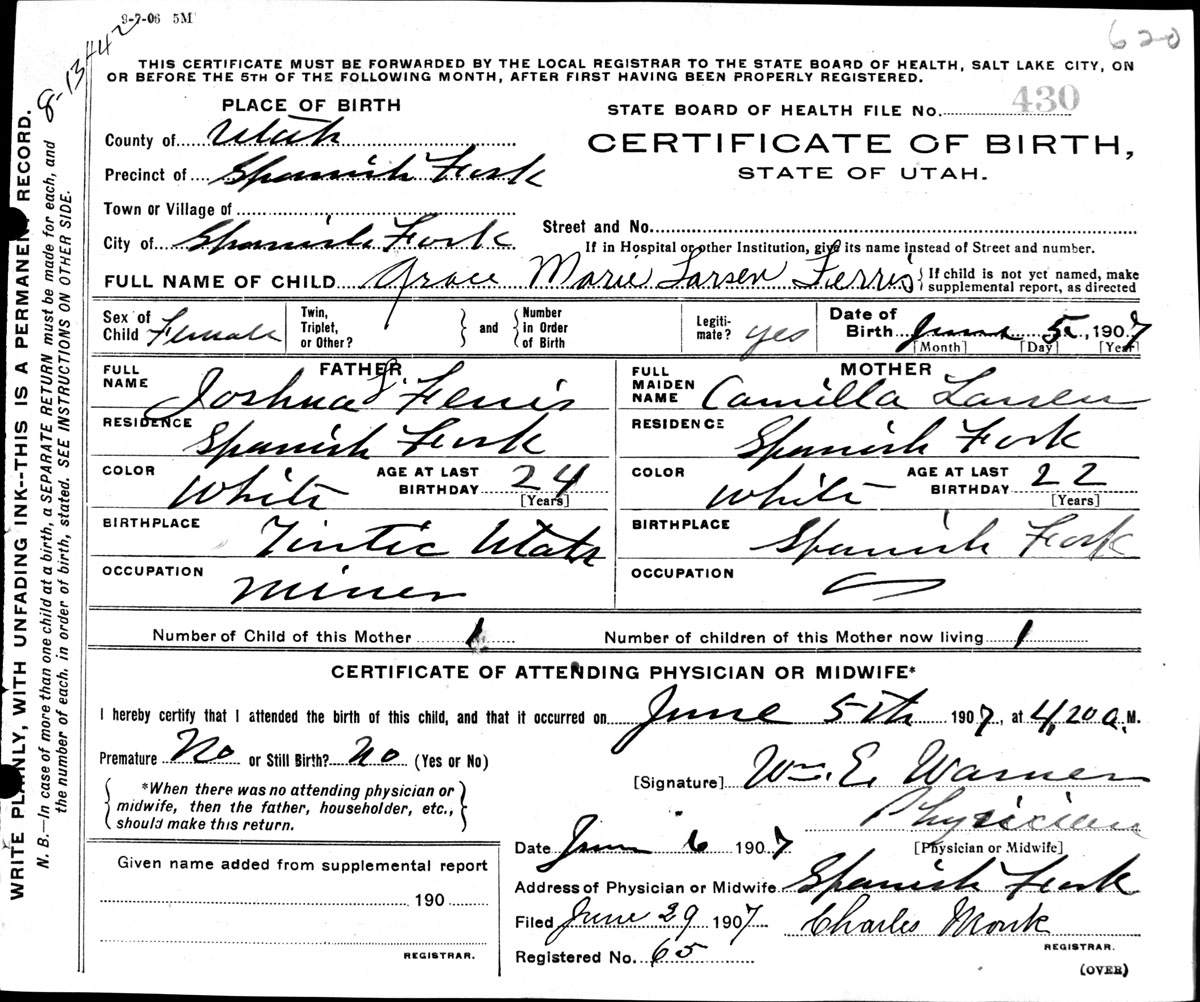 9-7-06 5M
620
8-13-42
THIS CERTIFICATE MUST BE FORWARDED BY THE LOCAL REGISTRAR TO THE STATE BOARD OF HEALTH, SALT LAKE CITY, ON
OR BEFORE THE 5TH OF THE FOLLOWING MONTH, AFTER FIRST HAVING BEEN PROPERLY REGISTERED.
WRITE PLAINLY, WITH UNFADING INK--THIS IS A PERMANENT RECORD.
N. B.—In case of more than one child at a birth, a SEPARATE RETURN must be made for each, and
the number of each, in order of birth, stated. SEE INSTRUCTIONS ON OTHER SIDE.
PLACE OF BIRTH
STATE BOARD OF HEALTH FILE No. 430
County of Utah
CERTIFICATE OF BIRTH,
Precinct of Spanish Fork
STATE OF UTAH.
Town or Village of
Street and No.
City of Spanish Fork
If in Hospital or other Institution, give its name instead of Street and number.
FULL NAME OF CHILD Grace Marie Larsen Ferris { If child is not yet named, make supplemental report, as directed
Sex of Child Female
Twin, Triplet, or Other? } and { Number in Order of Birth
Legiti- mate? yes
Date of Birth June 5, 1907
[Month] [Day] [Year]
FATHER
FULL NAME Joshua L. Ferris
MOTHER
FULL MAIDEN NAME Camilla Larsen
RESIDENCE Spanish Fork
RESIDENCE Spanish Fork
COLOR White AGE AT LAST BIRTHDAY 24 [Years]
COLOR White AGE AT LAST BIRTHDAY 22 [Years]
BIRTHPLACE Tintic Utah
BIRTHPLACE Spanish Fork
OCCUPATION Miner
OCCUPATION
Number of Child of this Mother 1 Number of children of this Mother now living 1
CERTIFICATE OF ATTENDING PHYSICIAN OR MIDWIFE*
I hereby certify that I attended the birth of this child, and that it occurred on June 5th 1907, at 4,20 a. M.
Premature No or Still Birth? No (Yes or No)
[Signature] Wm. E. Warner
*When there was no attending physician or
midwife, then the father, householder, etc.,
should make this return.
Physician
[Physician or Midwife]
Date June 6 1907
Given name added from supplemental report
Address of Physician or Midwife Spanish Fork
190
Filed June 29 1907 Charles Monk
REGISTRAR.
REGISTRAR.
Registered No. 65
(OVER)